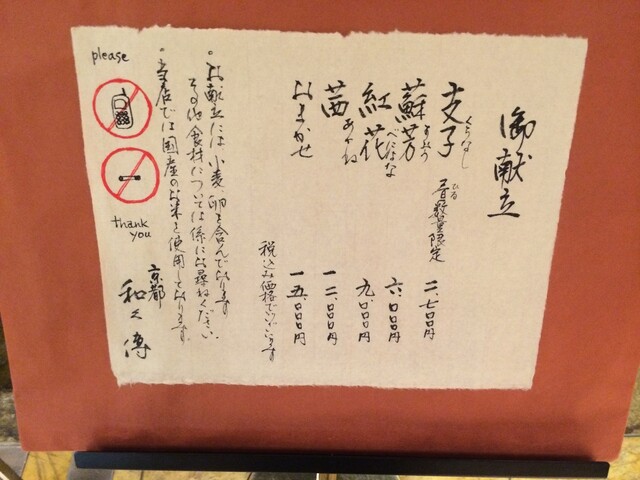 御献立
支子 くちなし 昼数量限定 ひる 二、七〇〇円
蘇芳 すおう 六、〇〇〇円
紅花 べにばな 九、〇〇〇円
茜 あかね 一二、〇〇〇円
おまかせ 一五、〇〇〇円
税込み価格でございます
。お献立には 小麦、卵を含んでおります
その他食材については係にお尋ねください。
。当店では国産のお米を使用しております。
京都
和久傳
please
thank
you